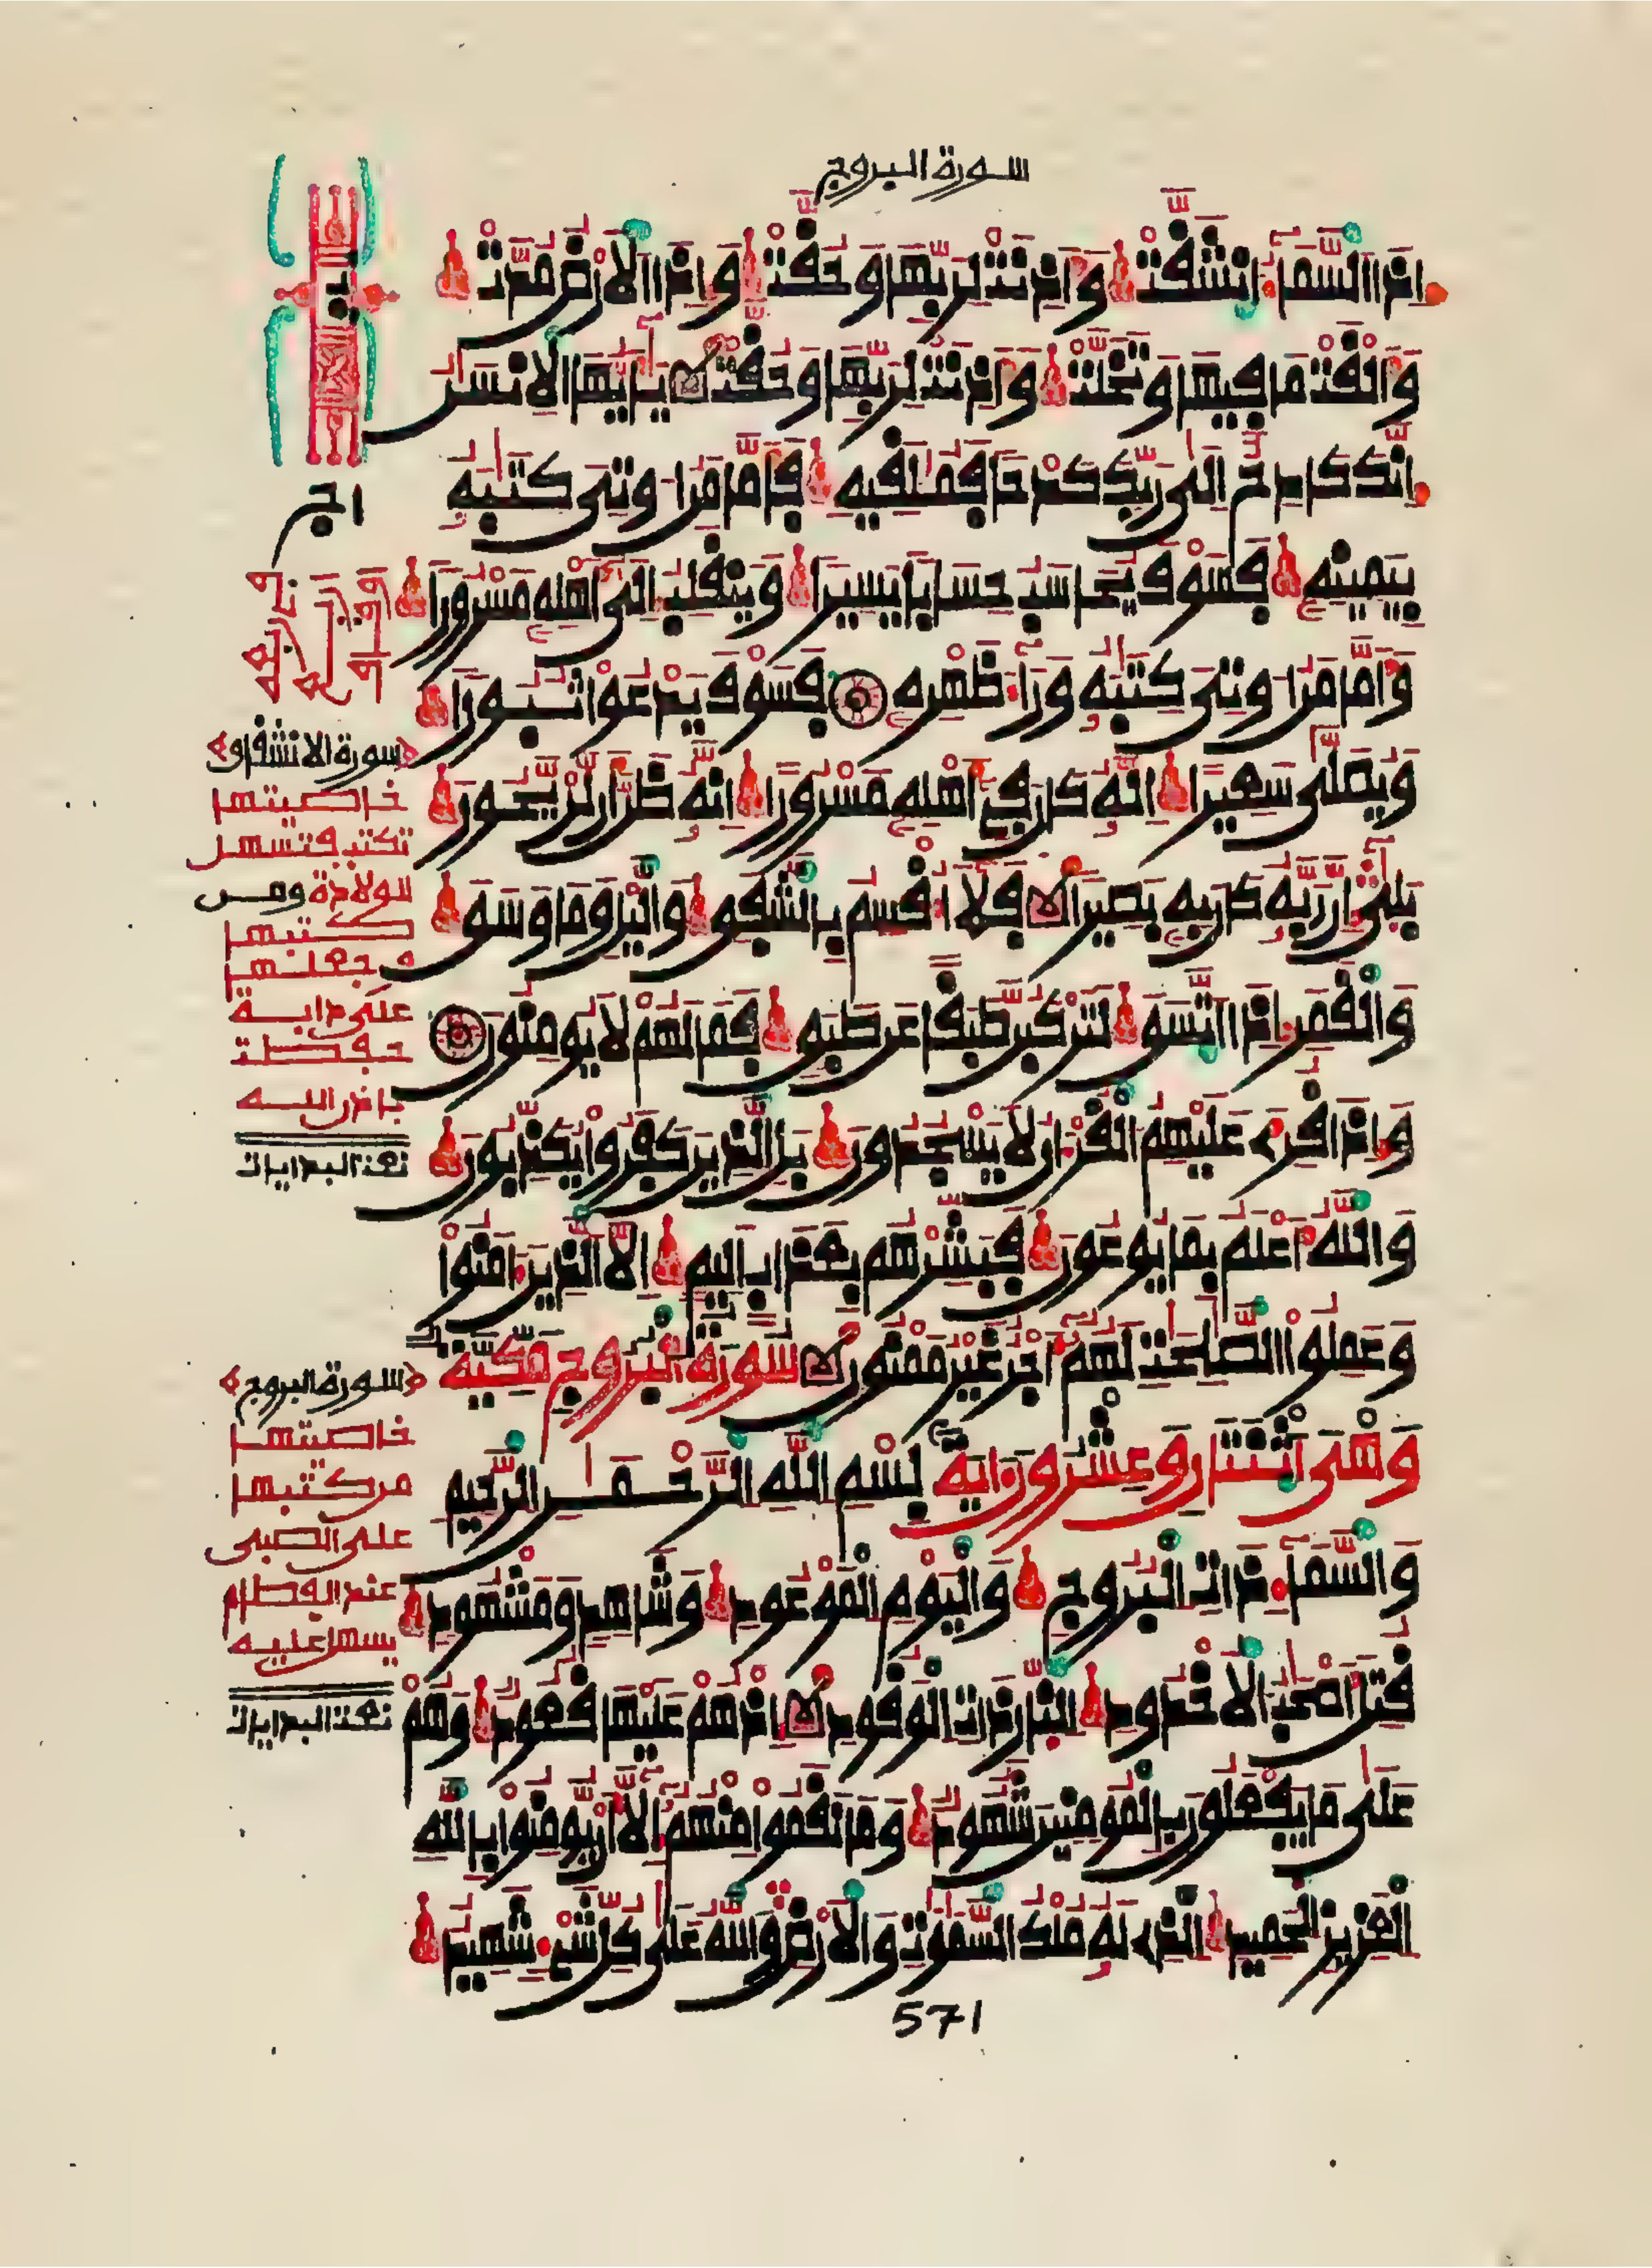 سورة البروج
اذا السماء انشقت واذنت لربها وحقت واذا الارض مدت
والقت ما فيها وتخلت واذنت لربها وحقت يايها الانسن
انك كادح الى ربك كدحا فملقيه فاما من اوتى كتبه
بيمينه فسوف يحاسب حسابا يسيرا وينقلب الى اهله مسرورا
واما من اوتى كتبه وراء ظهره فسوف يدعوا ثبورا
ويصلى سعيرا انه كان فى اهله مسرورا انه ظن ان لن يحور
بلى ان ربه كان به بصيرا فلا اقسم بالشفق واليل وما وسق
والقمر اذا اتسق لتركبن طبقا عن طبق فما لهم لا يومنون
واذا قرئ عليهم القرءان لا يسجدون بل الذين كفروا يكذبون
والله اعلم بما يوعون فبشرهم بعذاب اليم الا الذين ءامنوا
وعملوا الصلحت لهم اجر غير ممنون سورة البروج مكية
وهى اثنتان وعشرون ءاية بسم الله الرحمن الرحيم
والسماء ذات البروج واليوم الموعود وشاهد ومشهود
قتل اصحب الاخدود النار ذات الوقود اذ هم عليها قعود وهم
على ما يفعلون بالمومنين شهود وما نقموا منهم الا ان يومنوا بالله
العزيز الحميد الذى له ملك السموت والارض والله على كل شىء شهيد
571
سورة الانشقاق
خاصيتها
تكتب فتسهل
الولادة ومن
كتبها
وجعلها
على دابة
حفظت
باذن الله
نعت البدايات
سورة البروج
خاصيتها
من كتبها
على الصبى
عند الفطام
يسهل عليه
نعت البدايات